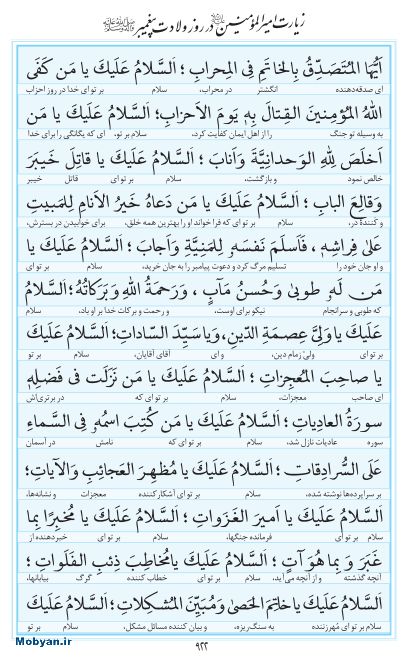 زیارت امیرالمؤمنین در روز ولادت پیغمبر
اَیُّهَا المُتَصَدِّقُ بِالخاتَمِ فِی المِحرابِ ؛ اَلسَّلامُ عَلَیكَ یا مَن كَفَی
ای صدقه‌دهنده انگشتر در محراب، سلام بر تو ای خدا در روز احزاب
اللهُ المُؤمِنینَ القِتالَ بِهِ یَومَ الاَحزابِ؛ اَلسَّلامُ عَلَیكَ یا مَن
به وسیله تو جنگ را از اهل ایمان کفایت کرد، سلام بر تو، ای که یگانگی را برای خدا
اَخلَصَ لِلّٰهِ الوَحدانِیَّةَ وَاَنابَ ؛ اَلسَّلامُ عَلَیكَ یا قاتِلَ خَیبَرَ
خالص نمود و بازگشت، سلام بر تو ای قاتل خیبر
وَقالِعَ البابِ ؛ اَلسَّلامُ عَلَیكَ یا مَن دَعاهُ خَیرُ الاَنامِ لِلمَبیتِ
و کننده در، سلام بر تو ای که فرا خواند او را بهترین همه خلق، برای خوابیدن در بسترش،
عَلیٰ فِراشِهِ ، فَاَسلَمَ نَفسَهُ لِلمَنِیَّةِ وَاَجابَ ؛ اَلسَّلامُ عَلَیكَ یا
و او جان خود را تسلیم مرگ کرد و دعوت پیامبر را به جان خرید، سلام بر تو ای
مَن لَهُ طوبیٰ وَحُسنُ مَآبٍ ، وَرَحمَةُ اللهِ وَبَرَكاتُهُ؛ اَلسَّلامُ
که طوبی و سرانجام نیکو برای اوست، و رحمت و برکات خدا بر او باد، سلام
عَلَیكَ یا وَلِیَّ عِصمَةِ الدّینِ، وَیا سَیِّدَ السّاداتِ؛ اَلسَّلامُ عَلَیكَ
بر تو ای ولیّ زمام دین، و ای آقای آقایان، سلام بر تو
یا صاحِبَ المُعجِزاتِ ؛ اَلسَّلامُ عَلَیكَ یا مَن نَزَلَت فی فَضلِهِ
ای صاحب معجزات، سلام بر تو ای که در برتری‌اش
سورَةُ العادِیاتِ ؛ اَلسَّلامُ عَلَیكَ یا مَن كُتِبَ اسمُهُ فِی السَّماءِ
سوره عادیات نازل شد، سلام بر تو ای که نامش در آسمان
عَلَی السُّرادِقاتِ ؛ اَلسَّلامُ عَلَیكَ یا مُظهِرَ العَجائِبِ وَالآیاتِ؛
بر سراپرده‌ها نوشته شده، سلام بر تو ای آشکار کننده معجزات و نشانه‌ها،
اَلسَّلامُ عَلَیكَ یا اَمیرَ الغَزَواتِ ؛ اَلسَّلامُ عَلَیكَ یا مُخبِرًا بِما
سلام بر تو ای فرمانده جنگها، سلام بر تو ای خبردهنده از
غَبَرَ وَ بِما هُوَ آتٍ ؛ اَلسَّلامُ عَلَیكَ یا مُخاطِبَ ذِئبِ الفَلَواتِ ؛
آنچه گذشته و از آنچه می‌آید، سلام بر تو ای خطاب کننده گرگ بیابانها،
اَلسَّلامُ عَلَیكَ یا خاتِمَ الحَصیٰ وَمُبَیِّنَ المُشكِلاتِ ؛ اَلسَّلامُ عَلَیكَ
سلام بر تو ای مُهرزننده به سنگ‌ریزه، و بیان کننده مسائل مشکل، سلام بر تو
۹۲۲
Mobyan.ir